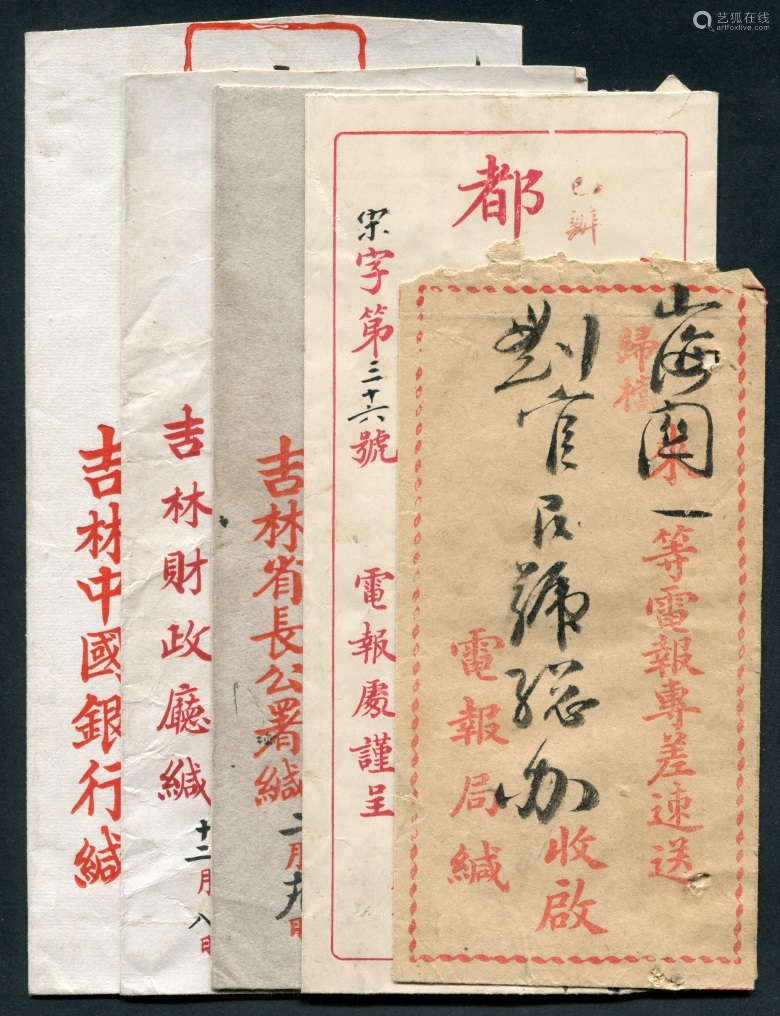 艺狐在线
artfoxlive.com
吉林中國銀行緘
吉林財政廳緘
十二月八日
吉林省長公署緘
二月九日
都
已辦
宋字第三十六號
電報處謹呈
山海關
歸檔
一等電報專差速送
收啟
電報局緘